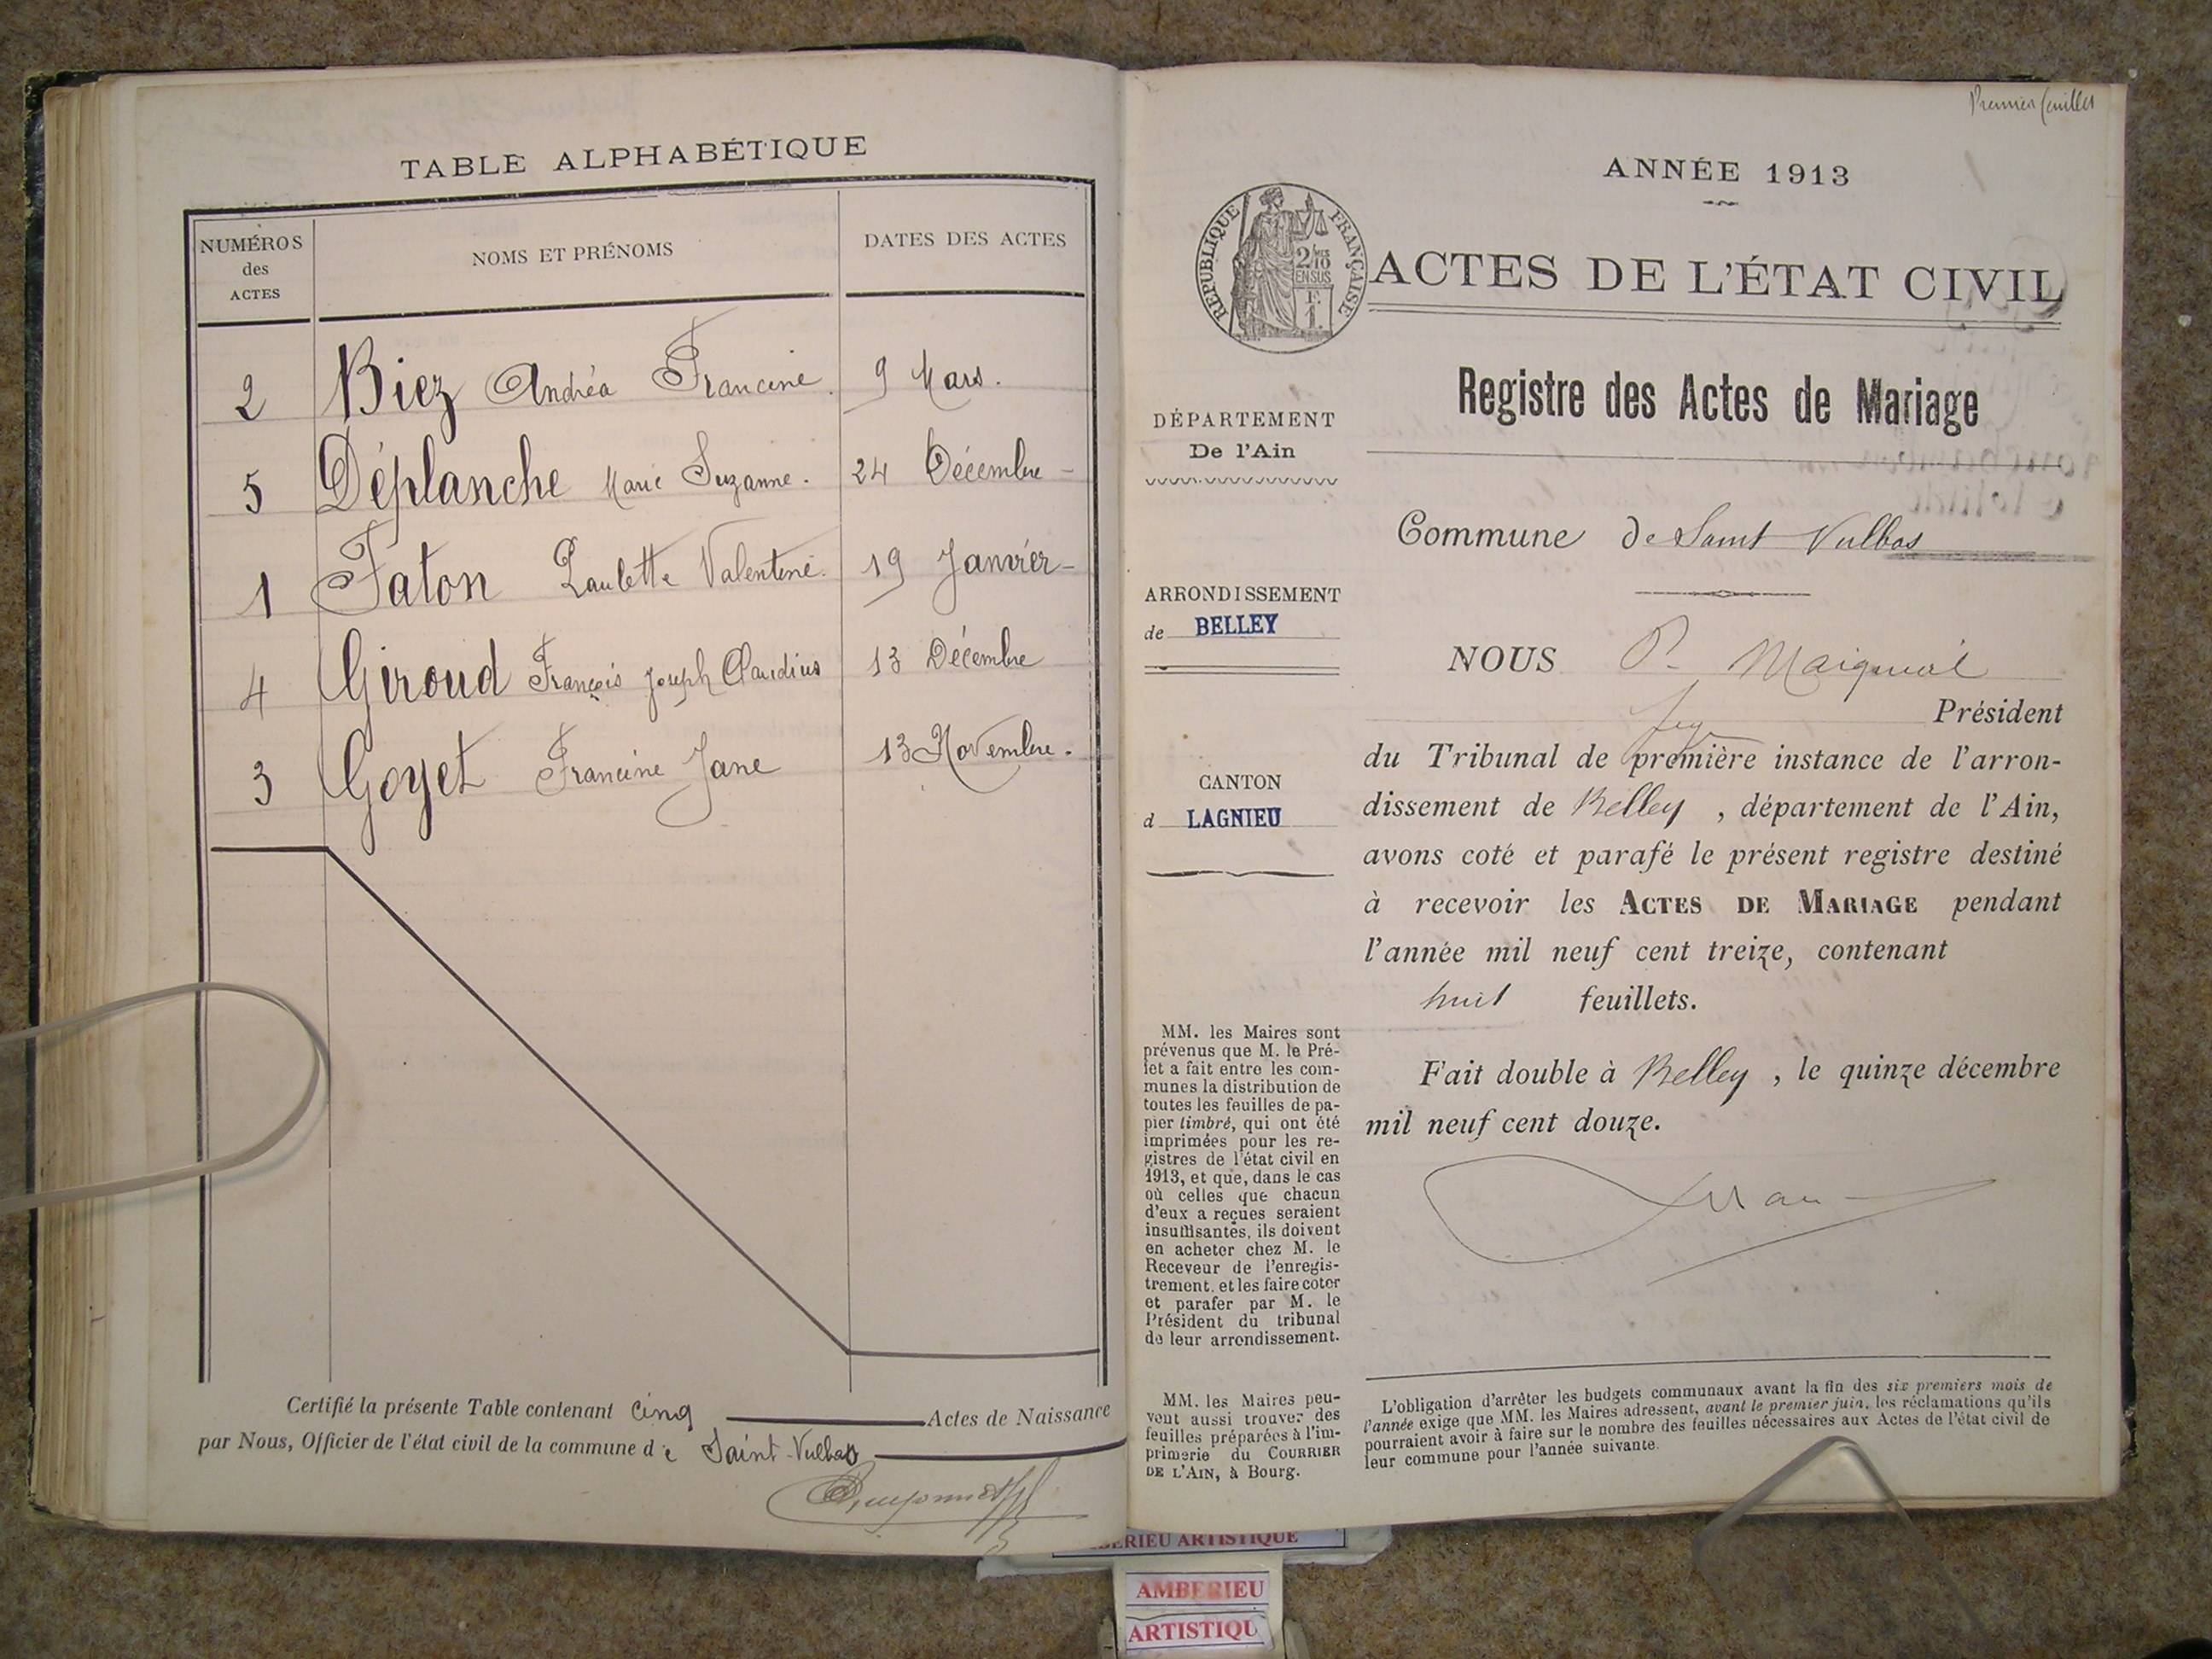 TABLE ALPHABÉTIQUE
NUMÉROS
des
ACTES
NOMS ET PRÉNOMS
DATES DES ACTES
2 Biez Andréa Francine 9 Mars.
5 Déplanche Marie Suzanne. 24 Décembre -
1 Faton Paulette Valentine. 19 Janvier -
4 Giroud François Joseph Claudius 13 Décembre
3 Goyet Francine Jane 13 Novembre.
Certifié la présente Table contenant cinq Actes de Naissance
par Nous, Officier de l'état civil de la commune de Saint-Vulbas
Premier feuillet
ANNÉE 1913
RÉPUBLIQUE FRANÇAISE
2/10
EN SUS
F.
1.
ACTES DE L'ÉTAT CIVIL
Registre des Actes de Mariage
DÉPARTEMENT
De l'Ain
ARRONDISSEMENT
de BELLEY
CANTON
d LAGNIEU
MM. les Maires sont
prévenus que M. le Pré-
fet a fait entre les com-
munes la distribution de
toutes les feuilles de pa-
pier timbré, qui ont été
imprimées pour les re-
gistres de l'état civil en
1913, et que, dans le cas
où celles que chacun
d'eux a reçues seraient
insuffisantes, ils doivent
en acheter chez M. le
Receveur de l'enregis-
trement, et les faire coter
et parafer par M. le
Président du tribunal
de leur arrondissement.
MM. les Maires peu-
vent aussi trouver des
feuilles préparées à l'im-
primerie du COURRIER
DE L'AIN, à Bourg.
Commune de Saint Vulbas
NOUS P.
Président
du Tribunal de première instance de l'arron-
dissement de Belley , département de l'Ain,
avons coté et parafé le présent registre destiné
à recevoir les ACTES DE MARIAGE pendant
l'année mil neuf cent treize, contenant
huit feuillets.
Fait double à Belley , le quinze décembre
mil neuf cent douze.
L'obligation d'arrêter les budgets communaux avant la fin des six premiers mois de
l'année exige que MM. les Maires adressent, avant le premier juin, les réclamations qu'ils
pourraient avoir à faire sur le nombre des feuilles nécessaires aux Actes de l'état civil de
leur commune pour l'année suivante.
BERIEU ARTISTIQUE
AMBERIEU
ARTISTIQU